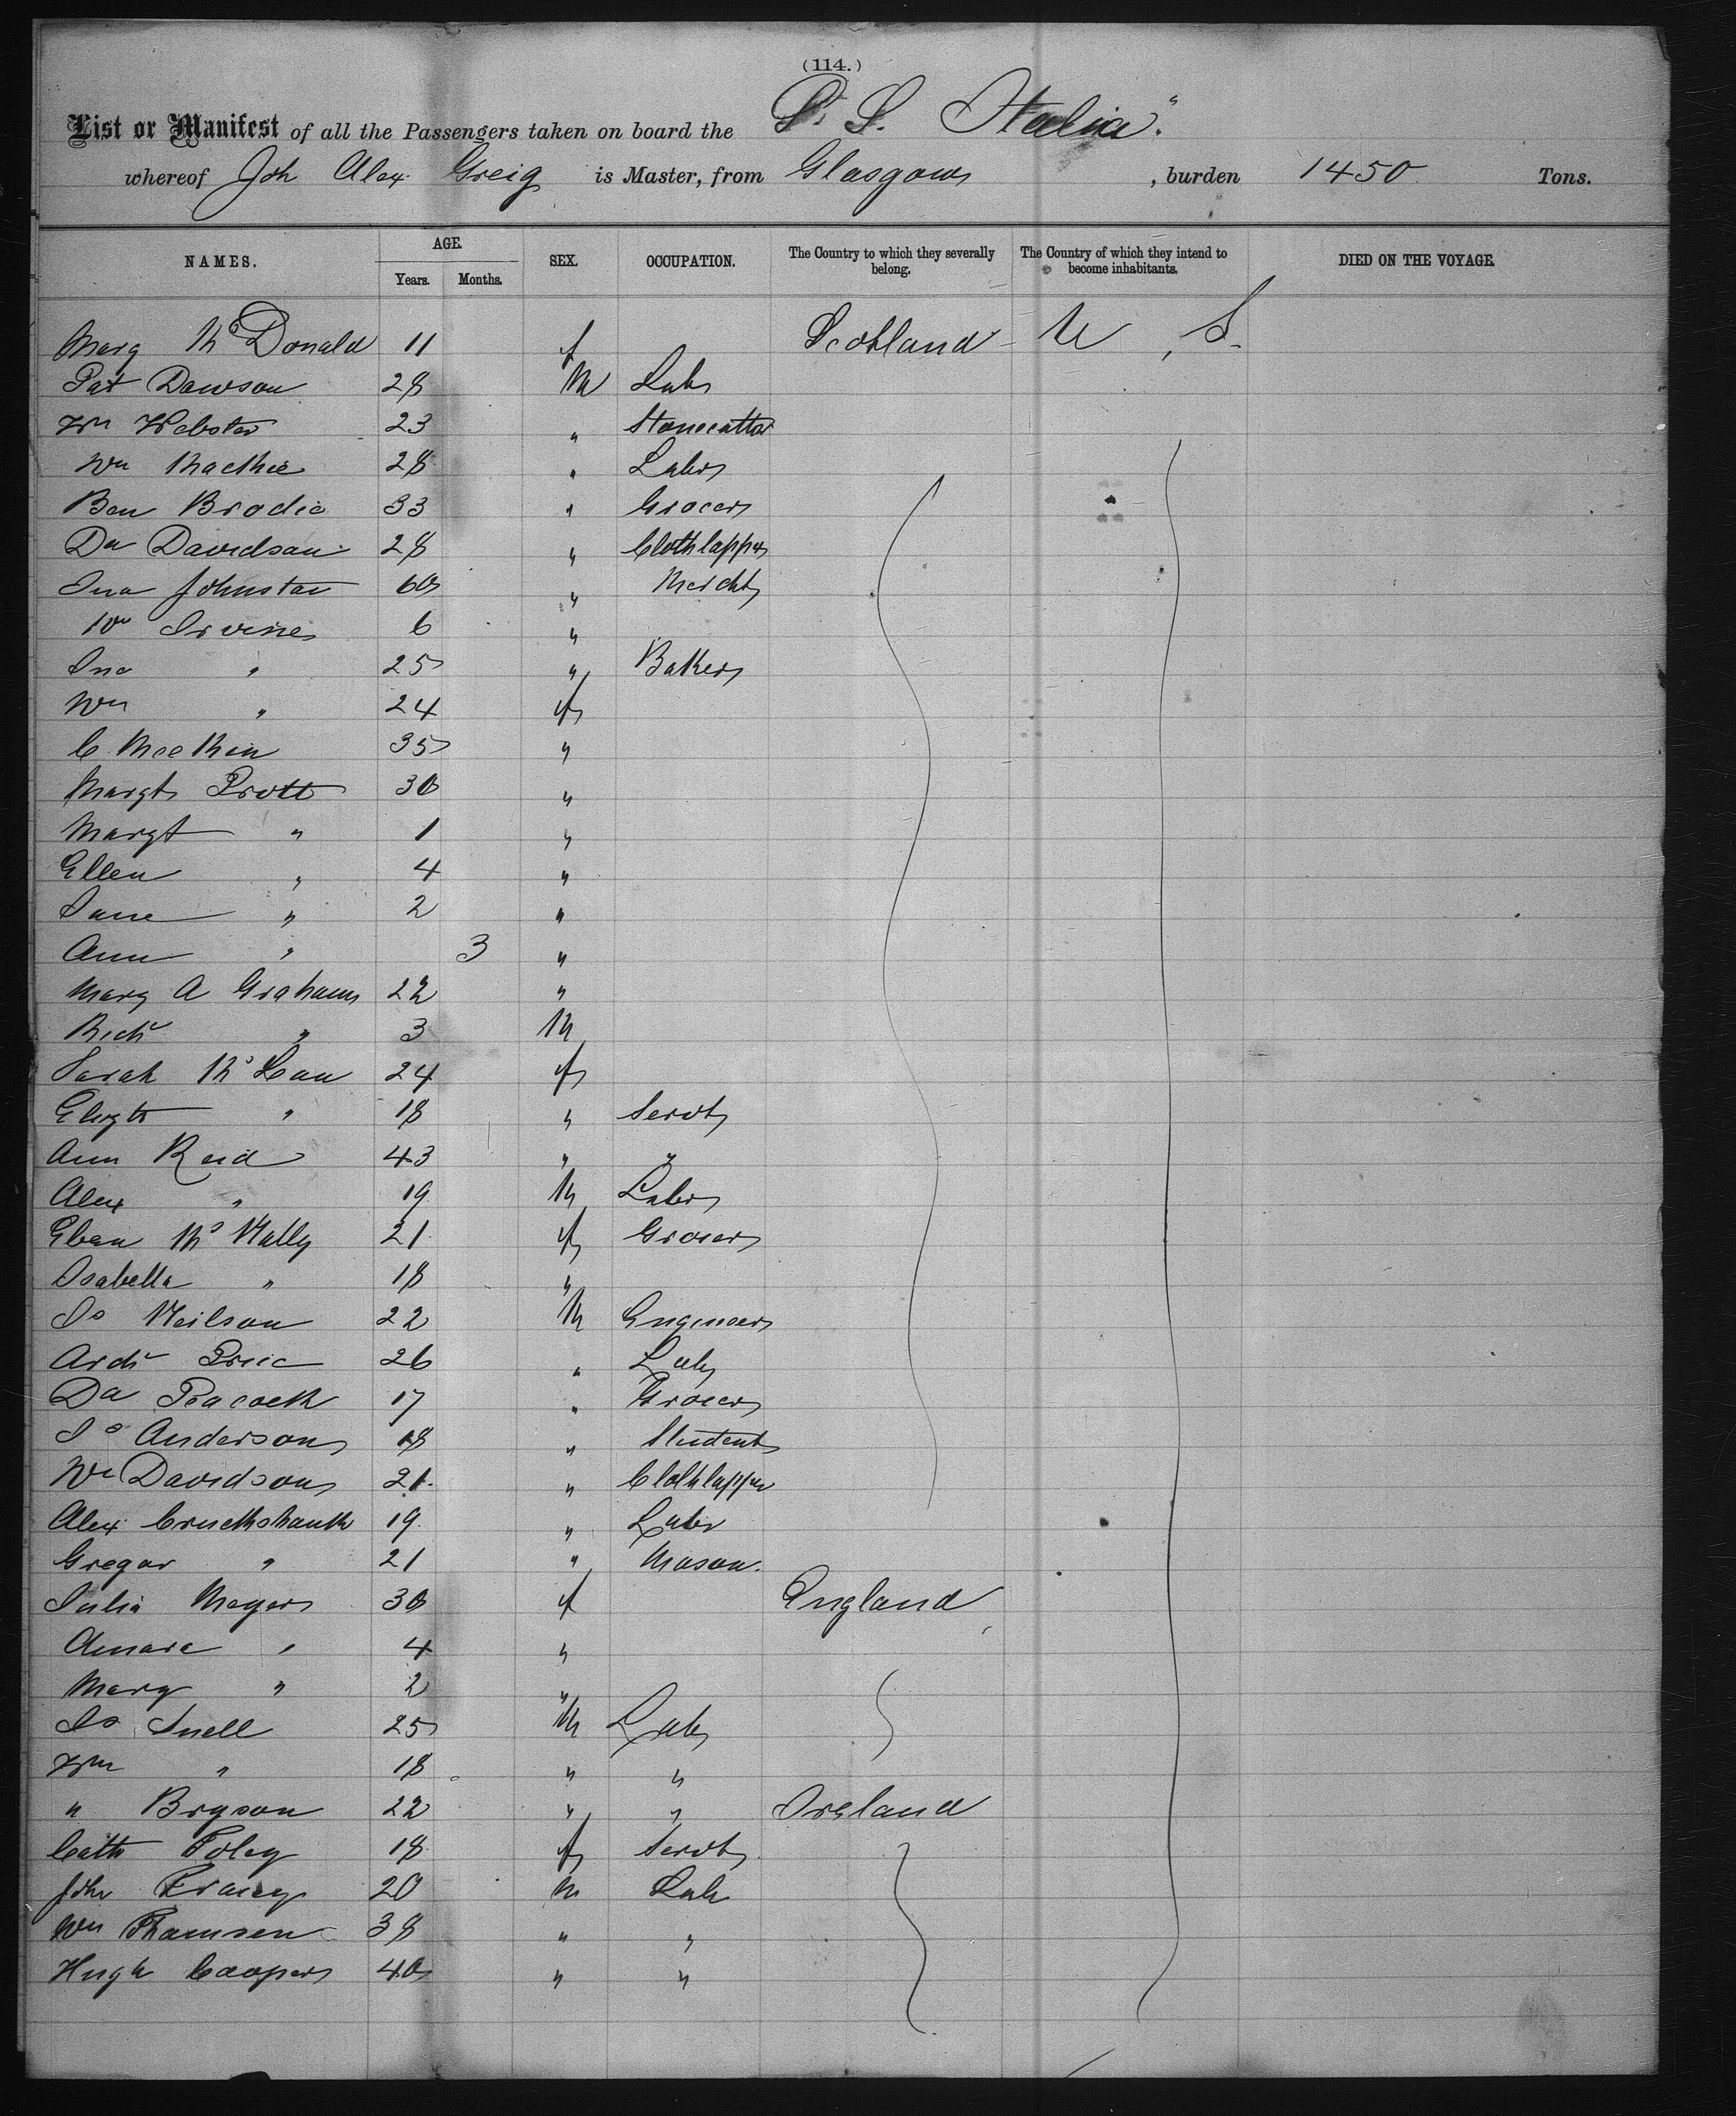 (114.)
List or Manifest of all the Passengers taken on board the S. S. Italia."
whereof Joh Alex Greig is Master, from Glasgow, burden 1450 Tons.
NAMES. AGE. Years. Months. SEX. OCCUPATION. The Country to which they severally belong. The Country of which they intend to become inhabitants. DIED ON THE VOYAGE.
Marg McDonald 11 f Scotland U S
Pat Dawson 28 M Labr
Wm Webster 23 " Stonecutter
Wm Mackie 28 " Labr
Ben Brodie 33 " Grocer
Da Davidson 28 " Clothlapper
Jno Johnston 60 " Mercht
Irvine 6 "
Jno " 25 " Baker
Wm " 24 f
C 35 "
Margt Prott 30 "
Margt " 1 "
Ellen " 4 "
Jane " 2 "
Ann " 3 "
Mary A Graham 22 "
Richd " 3 M
Sarah McLean 24 f
Elizth " 18 " Servt
Ann Reid 43 " "
Alex " 19 M Labr
Mc Nally 21 f Grocer
Isabella " 18 "
Js Neilson 22 M Engineer
Archd 26 " Lab
Da Peacock 17 " Grocer
Js Anderson 18 " Student
Wm Davidson 21 " Clothlapper
Alex Cruckshank 19 " Labr
Gregor " 21 " Mason.
Julia Meyer 30 f England
" 4 "
Mary " 2 "
Js Snell 25 M Lab
Wm " 18 " "
" Bryson 22 " " Ireland
Cath Foley 18 f Servt
Joh 20 M Lab
Wm Thomsen 38 " "
Hugh Cooper 40 " "